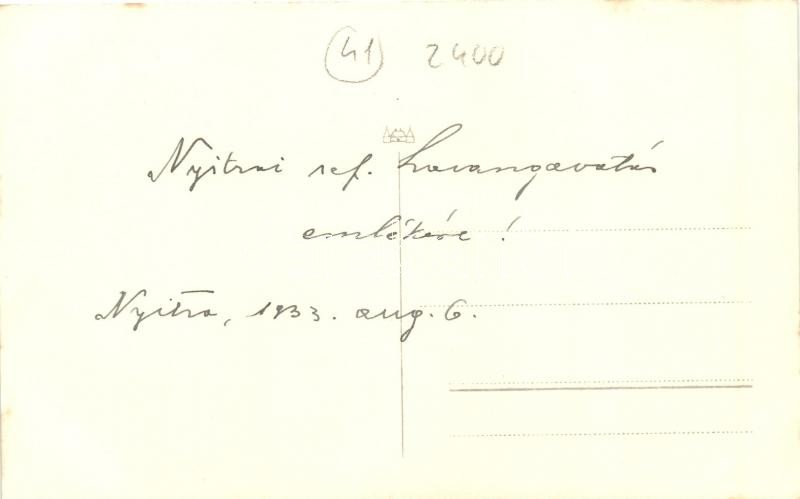 41 2400
Nyitrai ref. harangavatás
emlékére !
Nyitra, 1933. aug. 6.